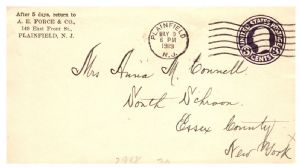 After 5 days, return to
A. E. FORCE & CO.,
149 East Front St.,
PLAINFIELD, N. J.
PLAINFIELD
MAY 9
6 PM
1919
N.J.
UNITED STATES POSTAGE
3 CENTS 3
Mrs Anna M. Connell
South Schroon
Essex County
New York